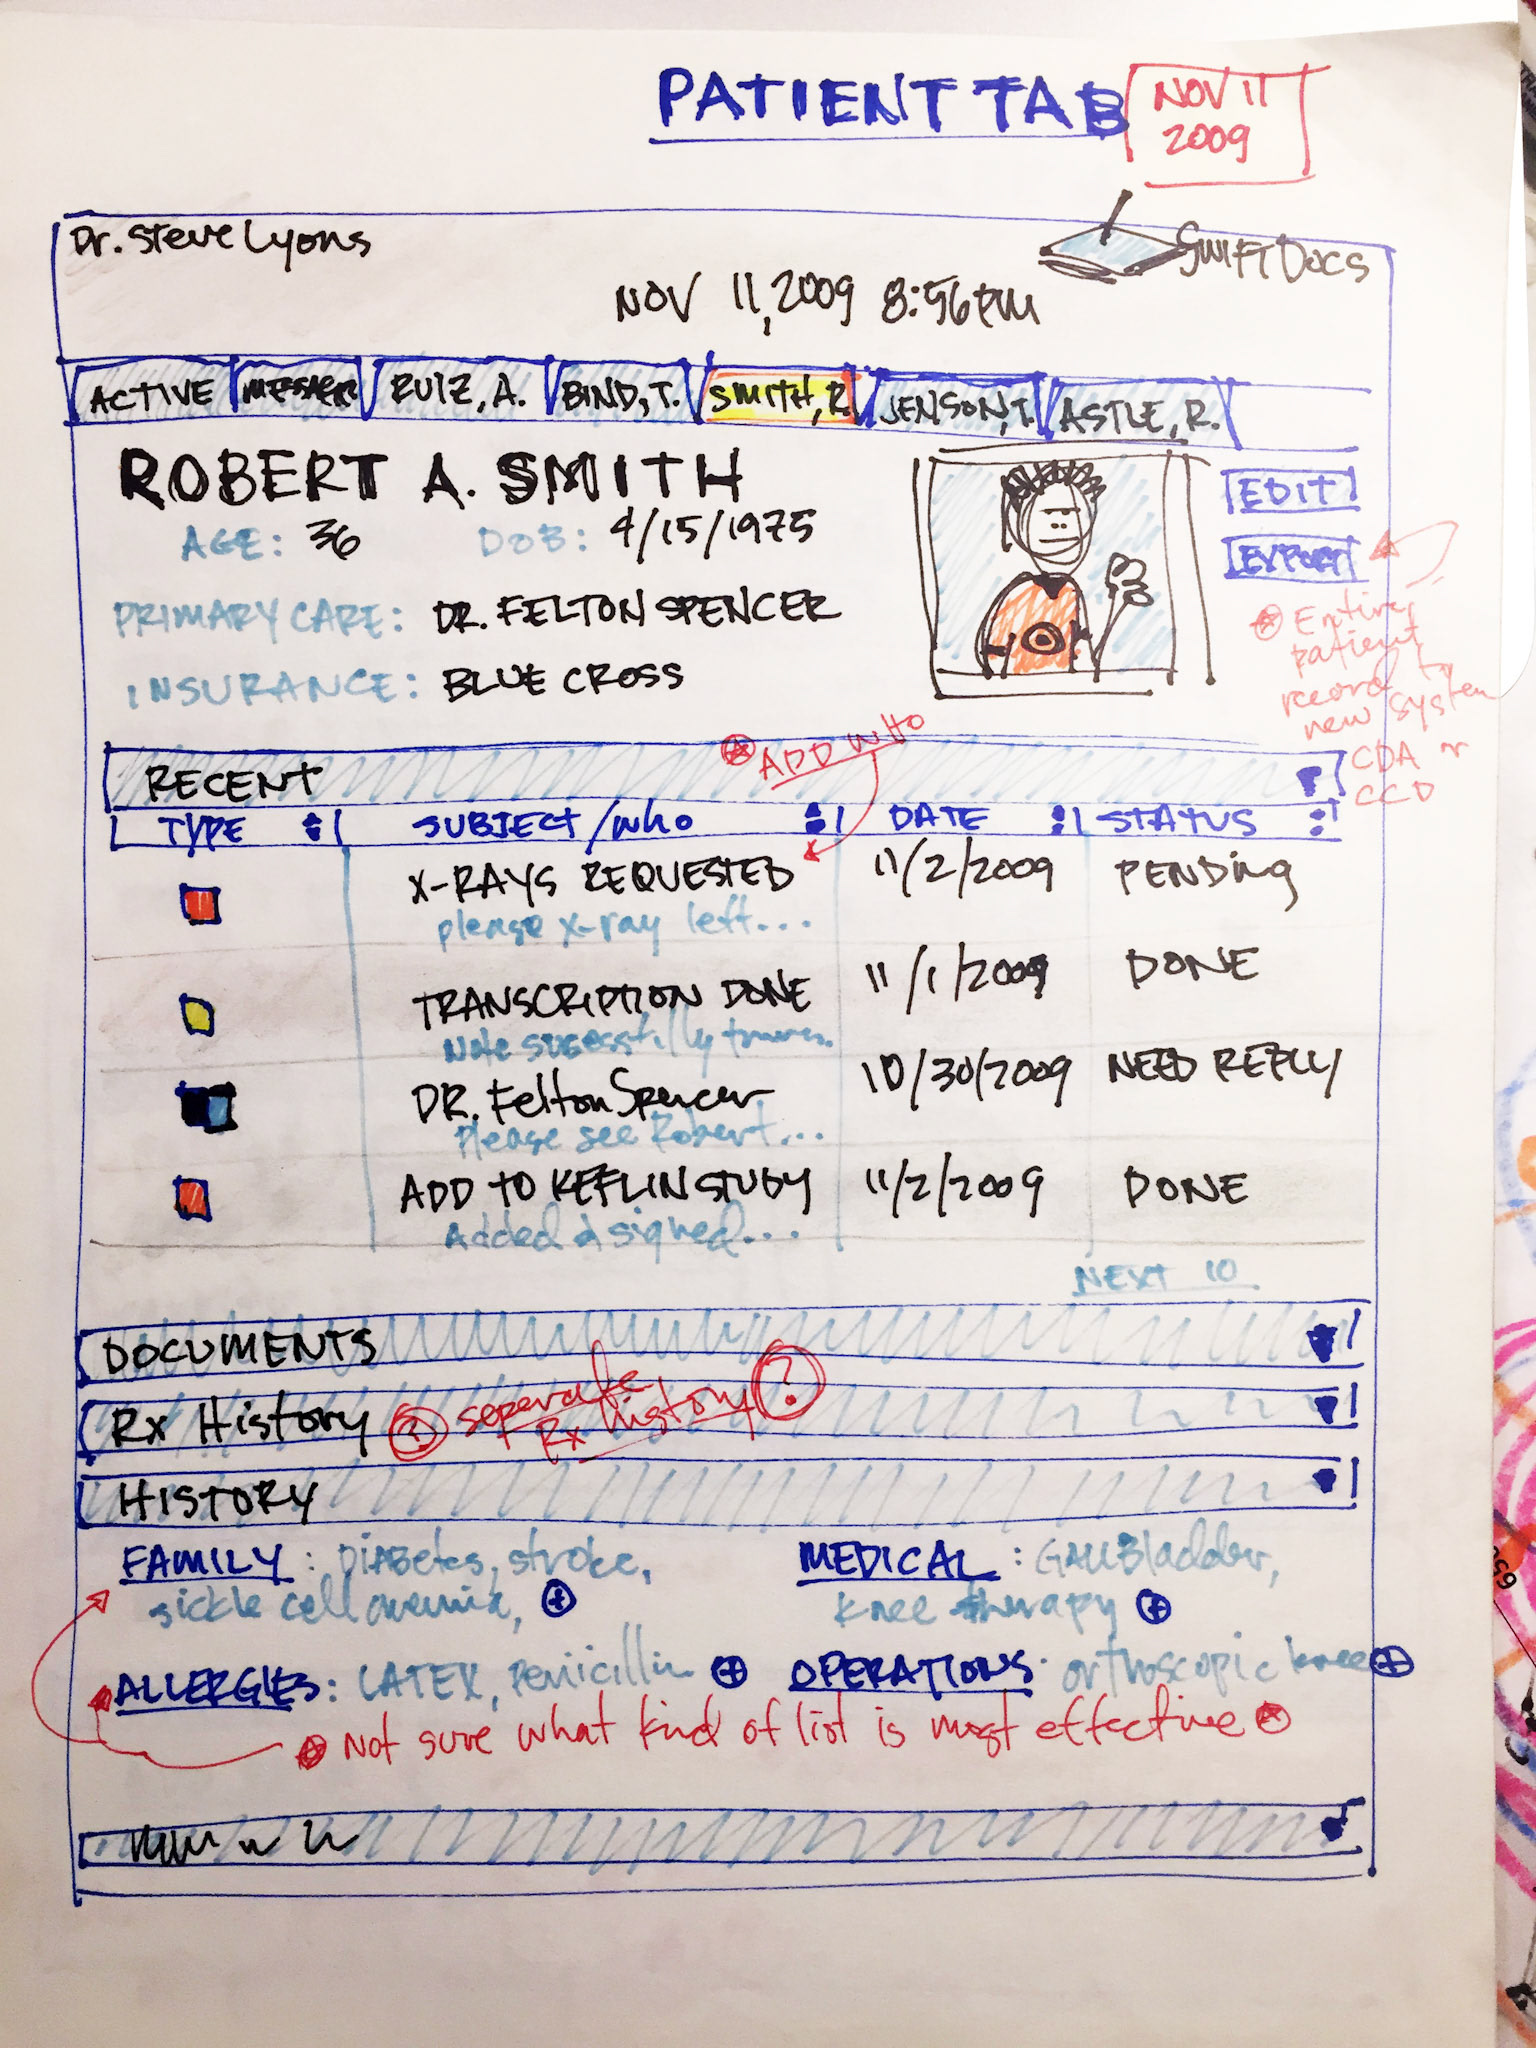 PATIENT TAB
NOV 11
2009
Dr. Steve Lyons
SWIFT DOCS
NOV 11, 2009 8:56 PM
ACTIVE
RUIZ, A.
BIND, T.
SMITH, R.
JENSON, T.
ASTLE, R.
ROBERT A. SMITH
EDIT
AGE: 36 DOB: 4/15/1975
EXPORT
PRIMARY CARE: DR. FELTON SPENCER
INSURANCE: BLUE CROSS
Entire
patient
record to
new system
CDA or
CCD
ADD WHO
RECENT
TYPE SUBJECT/WHO DATE STATUS
X-RAYS REQUESTED 11/2/2009 PENDING
please x-ray left...
TRANSCRIPTION DONE 11/1/2009 DONE
Note sucessfully
DR. Felton Spencer 10/30/2009 NEED REPLY
Please see Robert...
ADD TO KEFLIN STUDY 11/2/2009 DONE
Added & signed...
NEXT 10
DOCUMENTS
Rx History ? seperate
Rx history ?
HISTORY
FAMILY: Diabetes, stroke,
sickle cell anemia, +
MEDICAL: GALLBladder,
knee therapy +
ALLERGIES: LATEX, Penicillin +
OPERATIONS: orthoscopic knee +
Not sure what kind of list is most effective